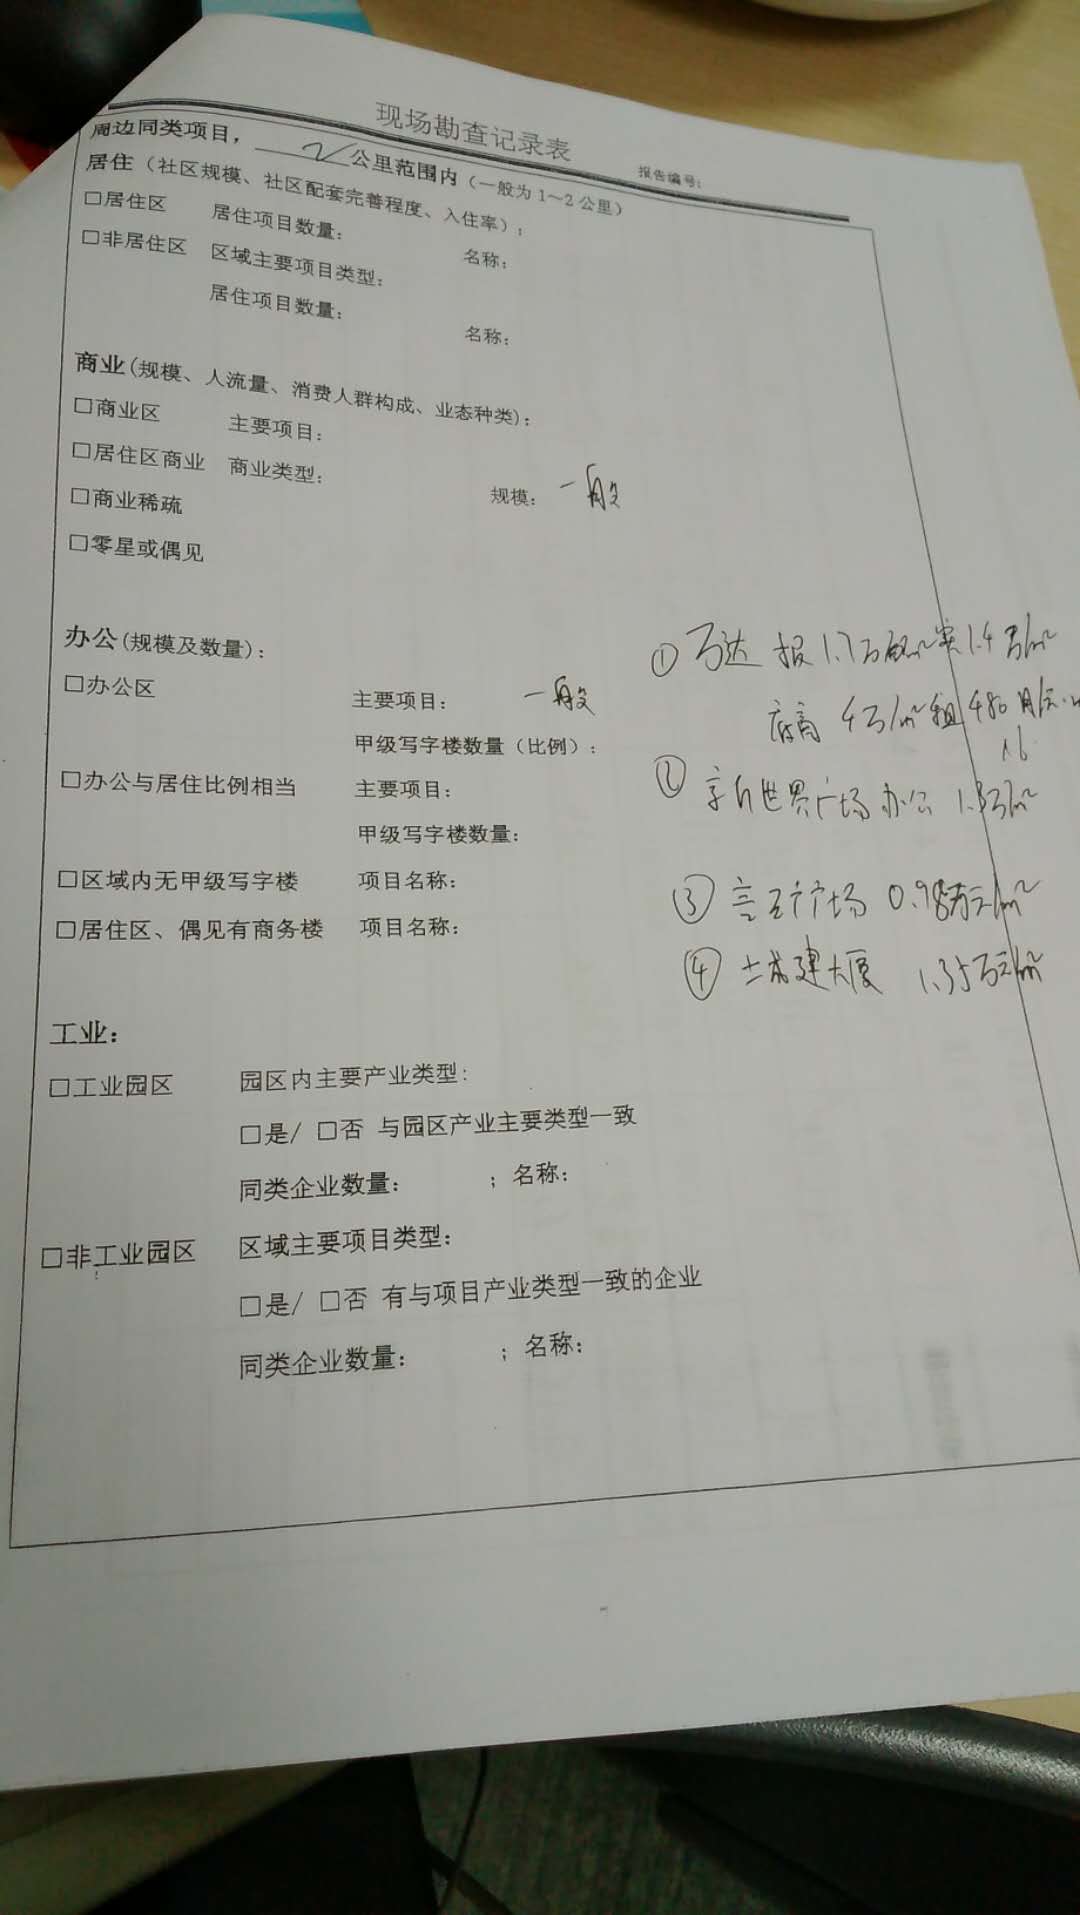 现场勘查记录表
报告编号:
周边同类项目, 2 公里范围内(一般为1~2公里)
居住(社区规模、社区配套完善程度、入住率):
□居住区 居住项目数量: 名称:
□非居住区 区域主要项目类型:
居住项目数量: 名称:
商业(规模、人流量、消费人群构成、业态种类):
□商业区 主要项目:
□居住区商业 商业类型: 规模: 一般
□商业稀疏
□零星或偶见
办公(规模及数量):
□办公区 主要项目: 一般
甲级写字楼数量(比例):
□办公与居住比例相当 主要项目:
甲级写字楼数量:
□区域内无甲级写字楼 项目名称:
□居住区、偶见有商务楼 项目名称:
① 万达 报1.7万 1.4万/m²
4万/m² 租 480
② 新世界广场 办公 1.3万/m²
③ 广场 0.98万元/m²
④ 建大厦 1.35万元/m²
工业:
□工业园区 园区内主要产业类型:
□是/ □否 与园区产业主要类型一致
同类企业数量: ;名称:
□非工业园区 区域主要项目类型:
□是/ □否 有与项目产业类型一致的企业
同类企业数量: ;名称: